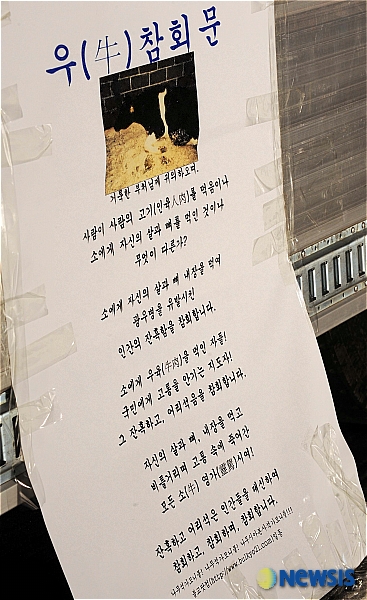 우(牛)참회문
거룩한 부처님께 귀의하오며.
사람이 사람의 고기(인육人肉)를 먹음이나
소에게 자신의 살과 뼈를 먹인 것이나
무엇이 다른가?
소에게 자신의 살과 뼈 내장을 먹여
광우병을 유발시킨
인간의 잔혹함을 참회합니다.
소에게 우육(牛肉)을 먹인 자들!
국민에게 고통을 안기는 지도자!
그 잔혹하고, 어리석음을 참회합니다.
자신의 살과 뼈, 내장을 먹고
비틀거리며 고통 속에 죽어간
모든 소(牛) 영가(靈駕)시여!
잔혹하고 어리석은 인간들을 대신하여
참회하고, 참회하며, 참회합니다.
나무석가모니불! 나무석가모니불! 나무시아본사석가모니불!!!
불교닷컴(http://www.bulkyo21.com)
NEWSIS